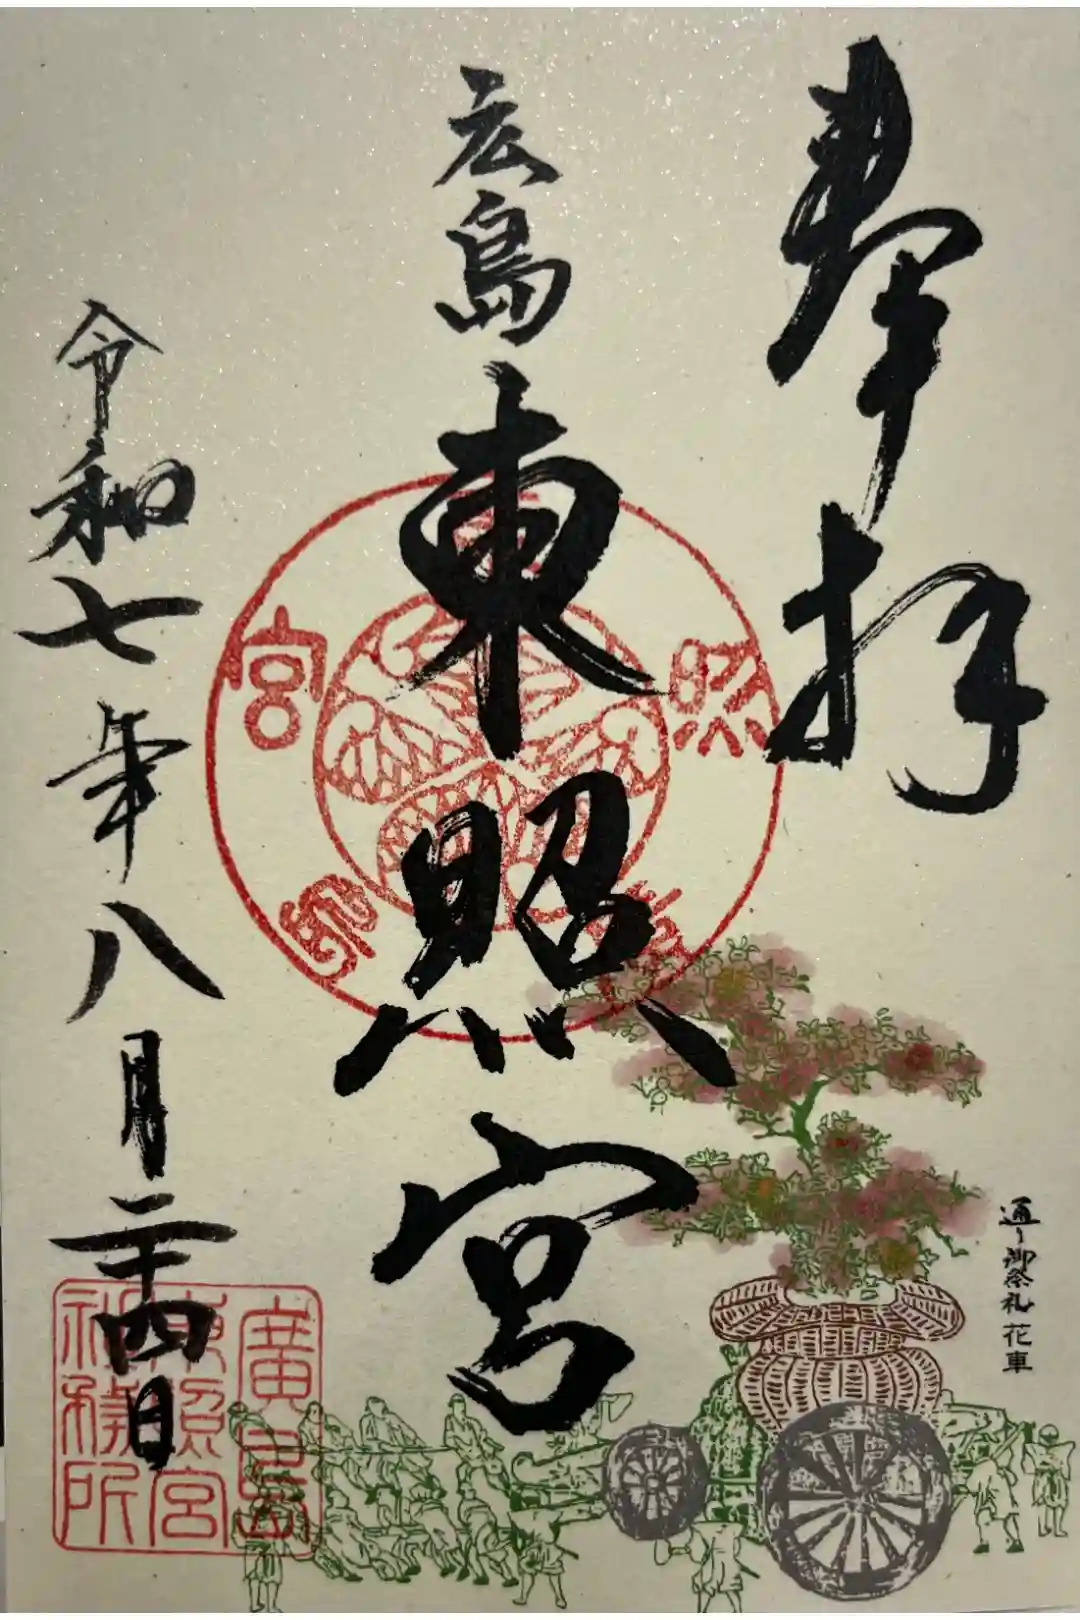 奉拝
広島
東照宮
令和七年八月二十四日
通り御祭礼 花車
廣島
東照宮
社務所